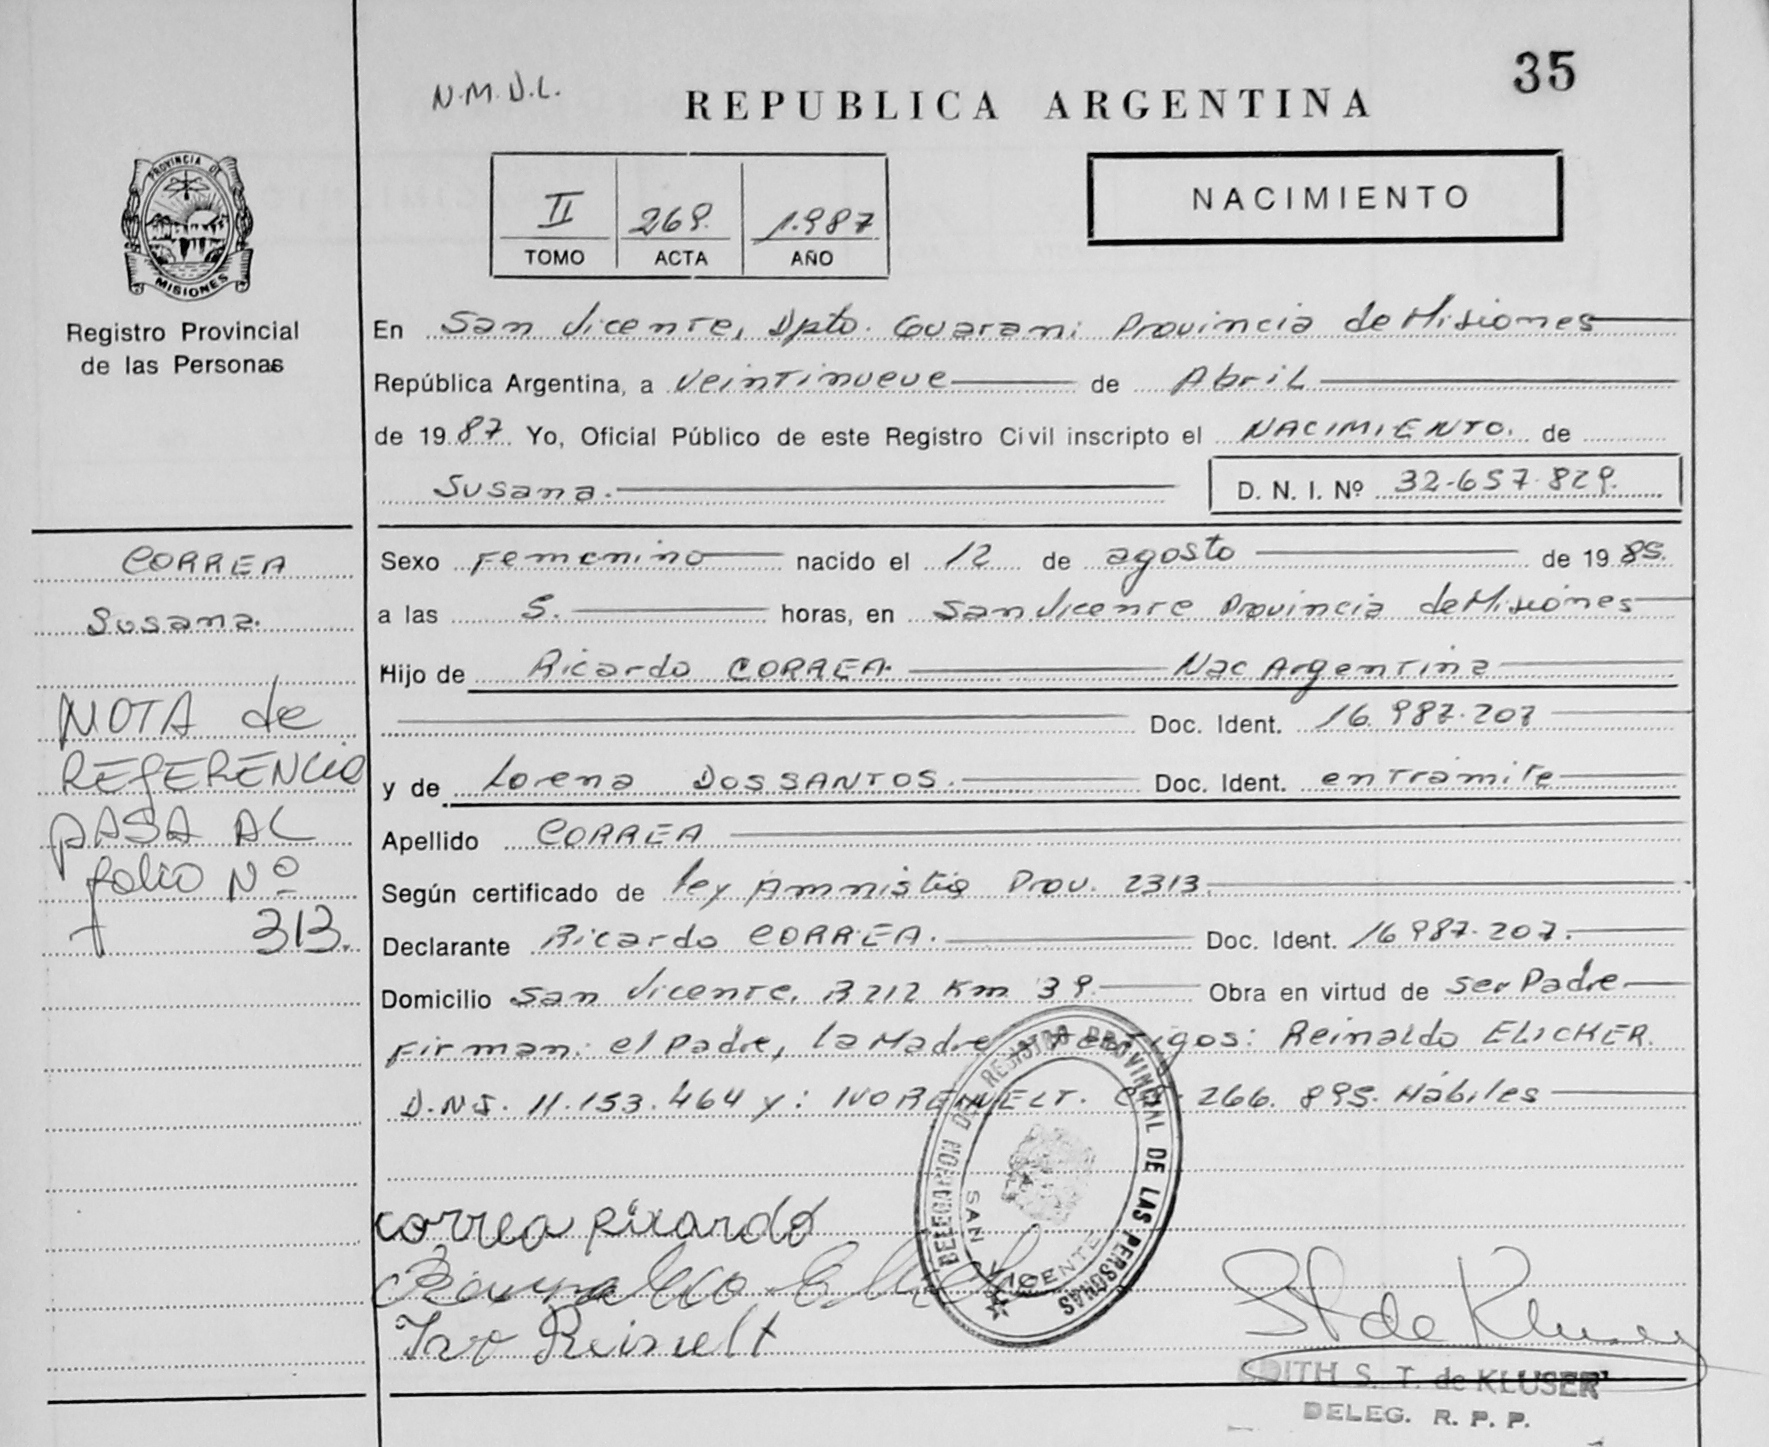 35
N.M.J.L.
REPUBLICA ARGENTINA
PROVINCIA DE
MISIONES
Registro Provincial
de las Personas
II 269. 1.987
TOMO ACTA AÑO
NACIMIENTO
En San Vicente, Dpto. Guarani Provincia de Misiones
República Argentina, a Veintinueve de Abril
de 1987 Yo, Oficial Público de este Registro Civil inscripto el NACIMIENTO. de
Susana.
D. N. I. Nº 32-657-829.
CORREA
Susana.
NOTA de
REFERENCIA
PASA AL
folio Nº
313.
Sexo Femenino nacido el 12 de agosto de 1985.
a las 5. horas, en San Vicente Provincia de Misiones
Hijo de Ricardo CORREA. Nac Argentina
Doc. Ident. 16.987.207
y de Lorena DOS SANTOS. Doc. Ident. en Tramite
Apellido CORREA
Según certificado de ley Amnistia Prov. 2313.
Declarante Ricardo CORREA. Doc. Ident. 16987.207.
Domicilio San Vicente. R 212 Km 39. Obra en virtud de ser Padre
Firman: el Padre, la Madre y Testigos: Reinaldo ELICKER.
D.N.I. 11.153.464 y: IVO 266.895. Hábiles
DELEGACION DEL REGISTRO PROVINCIAL DE LAS PERSONAS
SAN VICENTE
correa Ricardo
Ivo
St de Kluser
EDITH S. T. de KLUSER
DELEG. R. P. P.